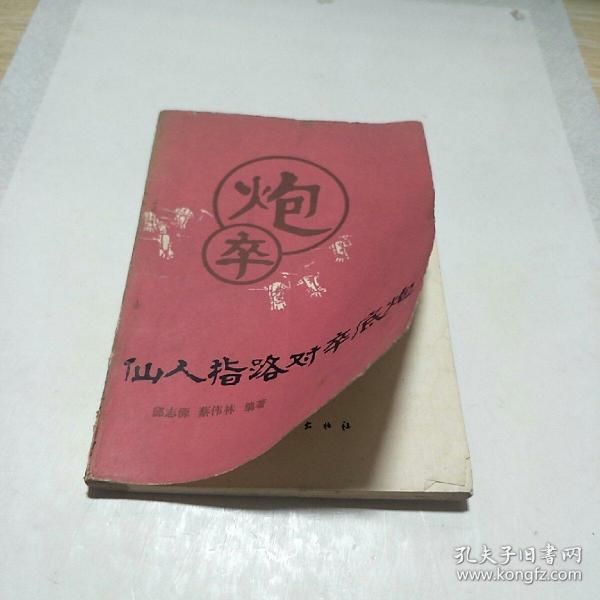 炮
卒
仙人指路对卒底炮
邱志源 蔡伟林 编著
出版社
孔夫子旧书网
www.kongfz.com